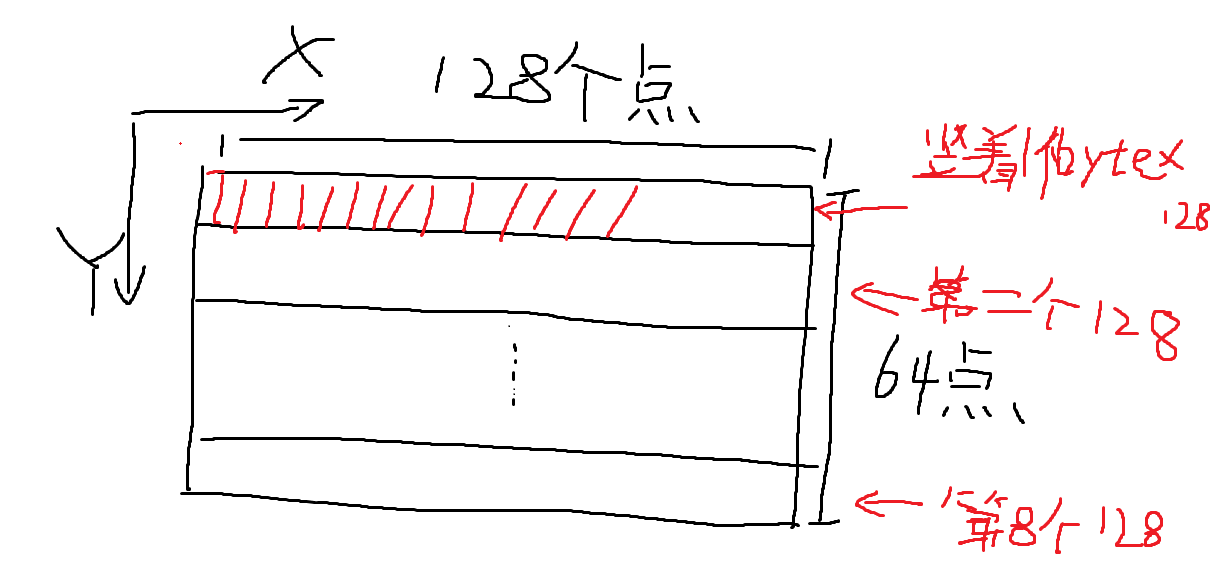 X
128个点
Y
竖着1个Bytex
128
第二个128
64点
第8个128